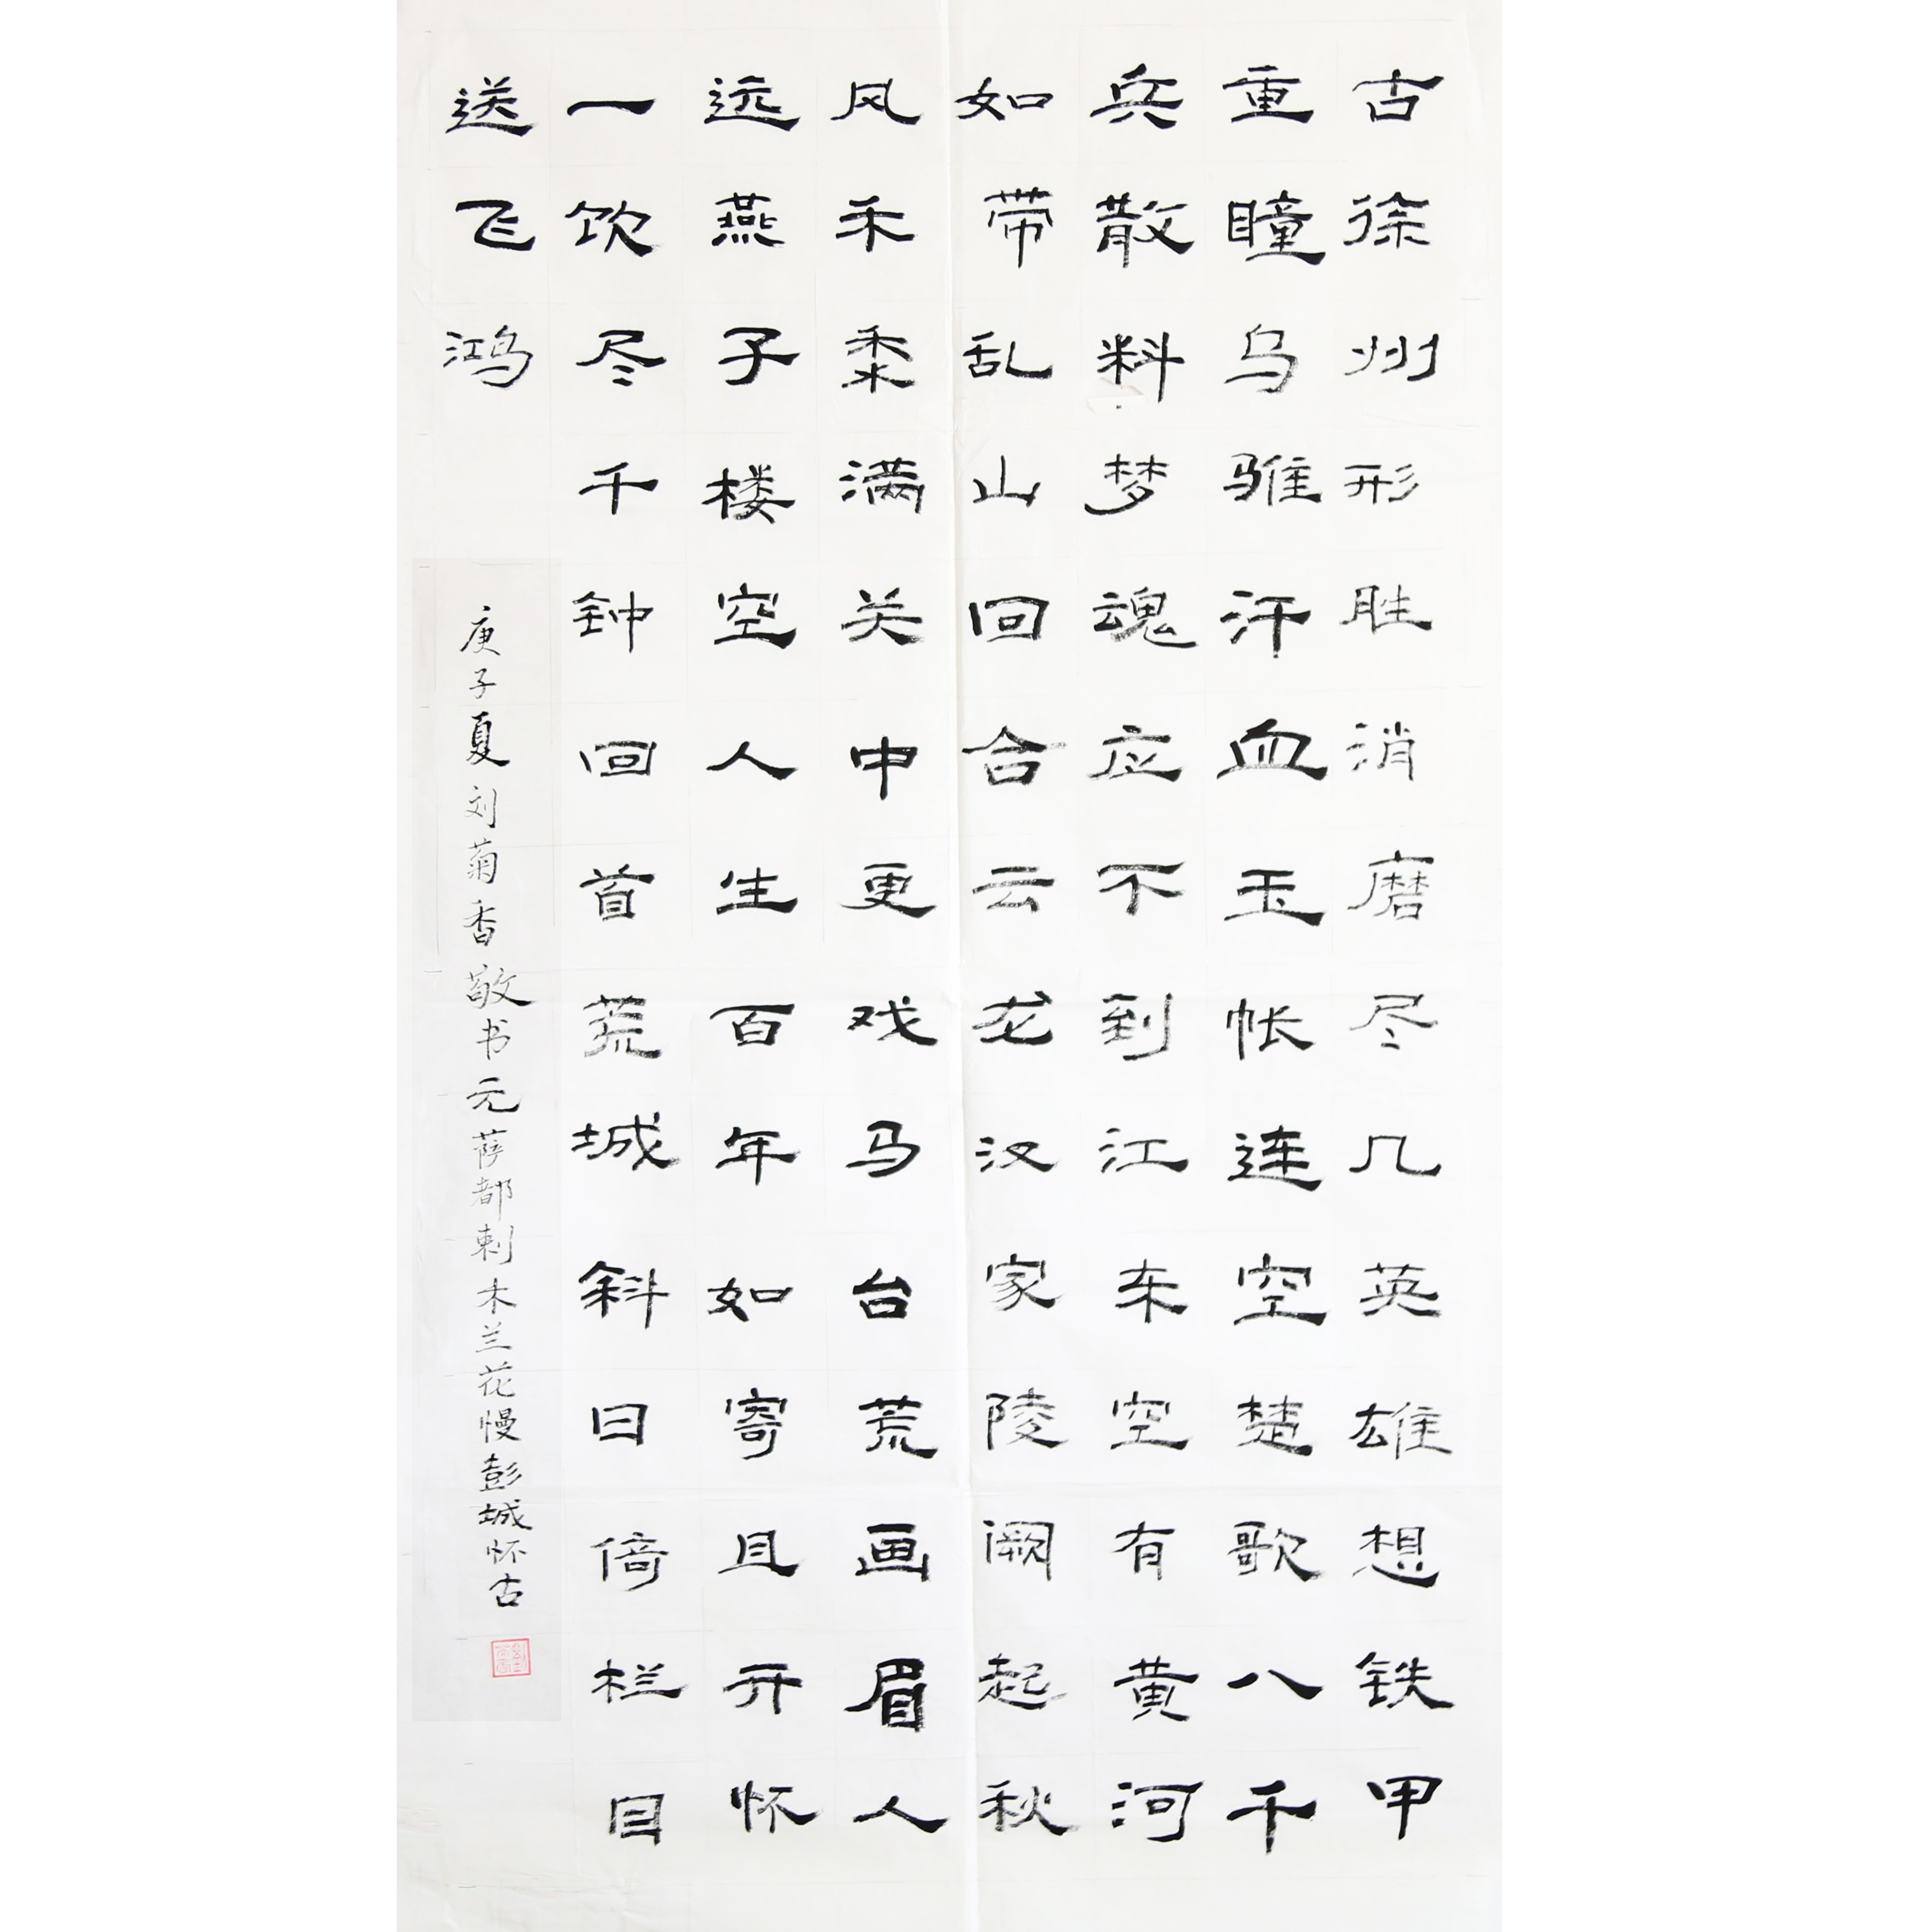 古徐州形胜消磨尽几英雄想铁甲
重瞳乌骓汗血玉帐连空楚歌八千
兵散料梦魂应不到江东空有黄河
如带乱山回合云龙汉家陵阙起秋
风禾黍满关中更戏马台荒画眉人
远燕子楼空人生百年如寄且开怀
一饮尽千钟回首荒城斜日倚栏目
送飞鸿
庚子夏刘菊香敬书元萨都剌木兰花慢彭城怀古